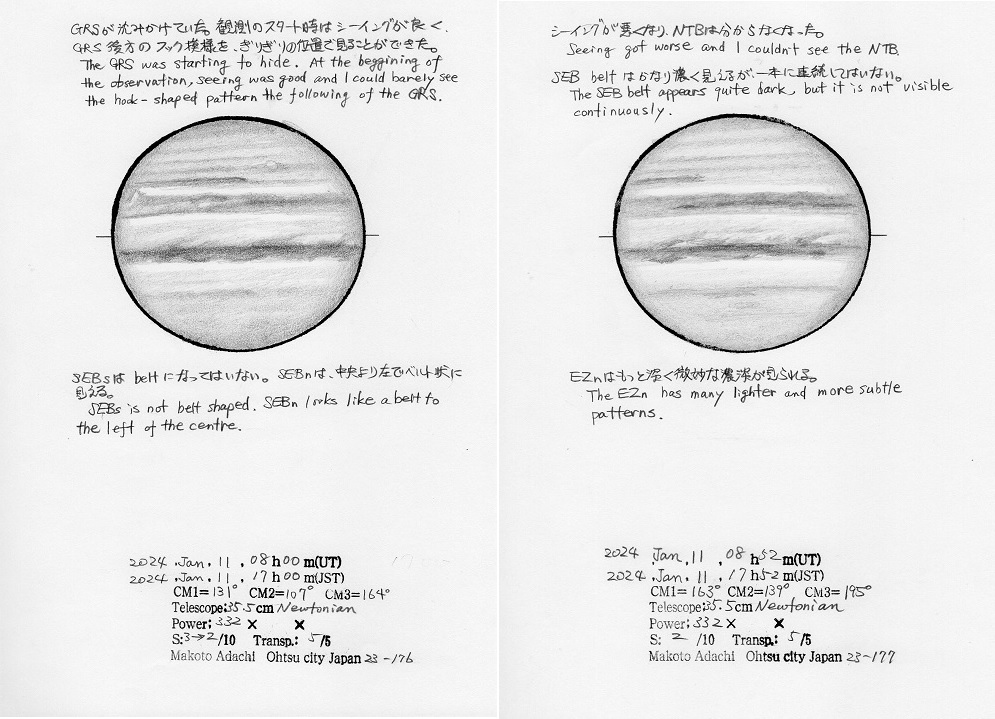 GRSが沈みかけていた。観測のスタート時はシーイングが良く、
GRS後方のフック模様を、ぎりぎりの位置で見ることができた。
The GRS was starting to hide. At the beggining of
the observation, seeing was good and I could barely see
the hook-shaped pattern the following of the GRS.
SEBsは beltになってはいない。SEBnは、中央より左でベルト状に
見える。
SEBs is not belt shaped. SEBn looks like a belt to
the left of the centre.
2024 .Jan. 11 .08h00m(UT)
2024 .Jan. 11 .17h00m(JST)
CM1=131° CM2=107° CM3=164°
Telescope:35.5cm Newtonian
Power; 332× ×
S:3→2/10 Transp.: 5/5
Makoto Adachi Ohtsu city Japan 23-176
シーイングが悪くなり、NTBは分からなくなった。
Seeing got worse and I couldn't see the NTB.
SEB belt はかなり濃く見えるが、一本に連続してはいない。
The SEB belt appears quite dark, but it is not visible
continuously.
EZnはもっと淡く微妙な濃淡が見られる。
The EZn has many lighter and more subtle
patterns.
2024 .Jan. 11 .08h52m(UT)
2024 .Jan. 11 .17h52m(JST)
CM1=163° CM2=139° CM3=195°
Telescope:35.5cm Newtonian
Power; 332× ×
S: 2 /10 Transp.: 5/5
Makoto Adachi Ohtsu city Japan 23-177